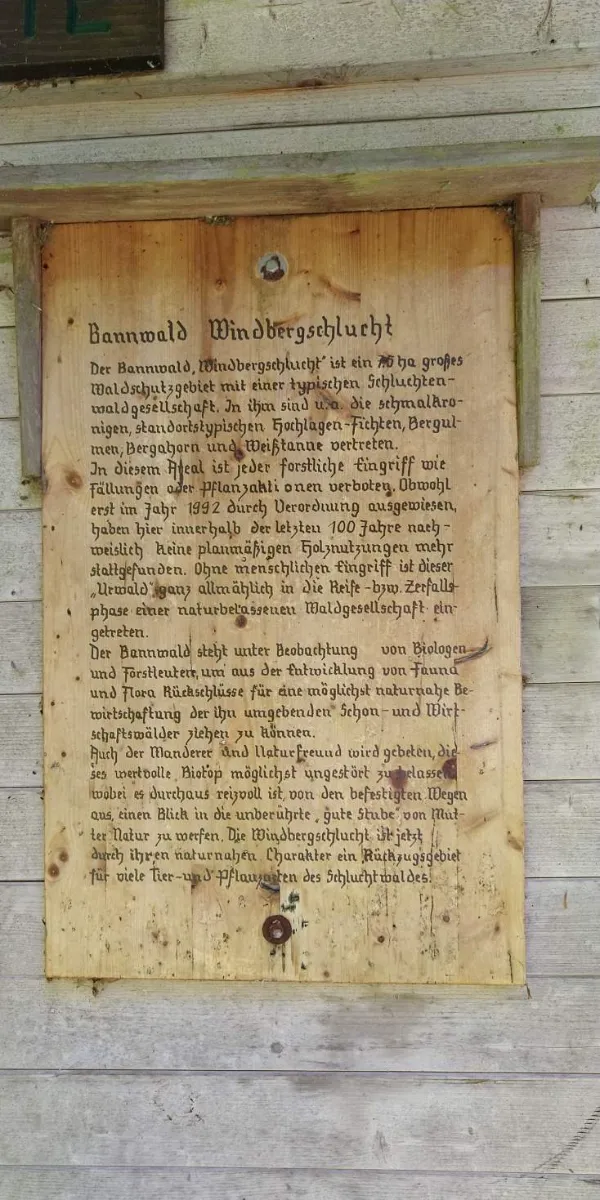 Bannwald Windbergschlucht
Der Bannwald „Windbergschlucht" ist ein ha großes
Waldschutzgebiet mit einer typischen Schluchten-
waldgesellschaft. In ihm sind u.a. die schmalkro-
nigen, standortstypischen Hochlagen-Fichten, Bergul-
men, Bergahorn und Weißtanne vertreten.
In diesem Areal ist jeder forstliche Eingriff wie
Fällungen oder Pflanzakti onen verboten. Obwohl
erst im Jahr 1992 durch Verordnung ausgewiesen,
haben hier innerhalb der letzten 100 Jahre nach-
weislich keine planmäßigen Holznutzungen mehr
stattgefunden. Ohne menschlichen Eingriff ist dieser
„Urwald" ganz allmählich in die Reife-bzw. Zerfalls-
phase einer naturbelassenen Waldgesellschaft ein-
getreten.
Der Bannwald steht unter Beobachtung von Biologen
und Forstleuten, um aus der Entwicklung von Fauna
und Flora Rückschlüsse für eine möglichst naturnahe Be-
wirtschaftung der ihn umgebenden Schon- und Wirt-
schaftswälder ziehen zu können.
Auch der Wanderer und Naturfreund wird gebeten, die-
ses wertvolle Biotop möglichst ungestört zu belassen
wobei es durchaus reizvoll ist, von den befestigten Wegen
aus, einen Blick in die unberührte „gute Stube" von Mut-
ter Natur zu werfen. Die Windbergschlucht ist jetzt
durch ihren naturnahen Charakter ein Rückzugsgebiet
für viele Tier- und Pflanzarten des Schluchtwaldes.